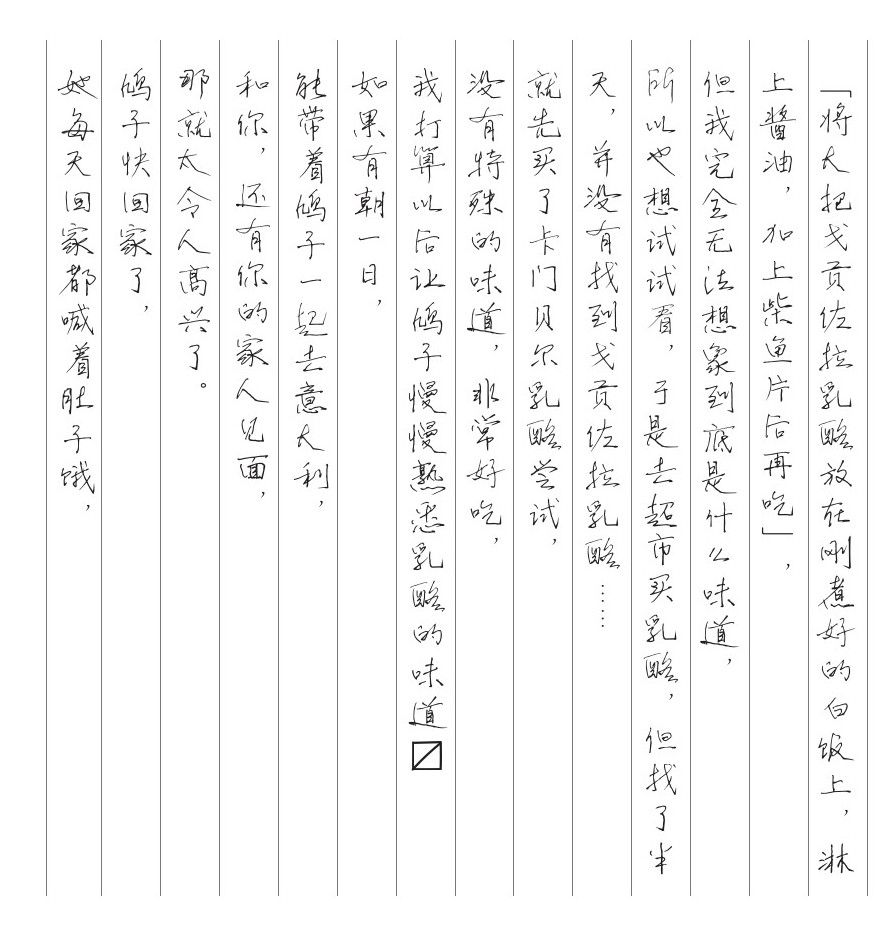 「将大把戈贡佐拉乳酪放在刚煮好的白饭上，淋
上酱油，加上柴鱼片后再吃」，
但我完全无法想象到底是什么味道，
所以也想试试看，于是去超市买乳酪，但找了半
天，并没有找到戈贡佐拉乳酪……
就先买了卡门贝尔乳酪尝试，
没有特殊的味道，非常好吃，
我打算以后让鸠子慢慢熟悉乳酪的味道〼
如果有朝一日，
能带着鸠子一起去意大利，
和你，还有你的家人见面，
那就太令人高兴了。
鸠子快回家了，
她每天回家都喊着肚子饿，